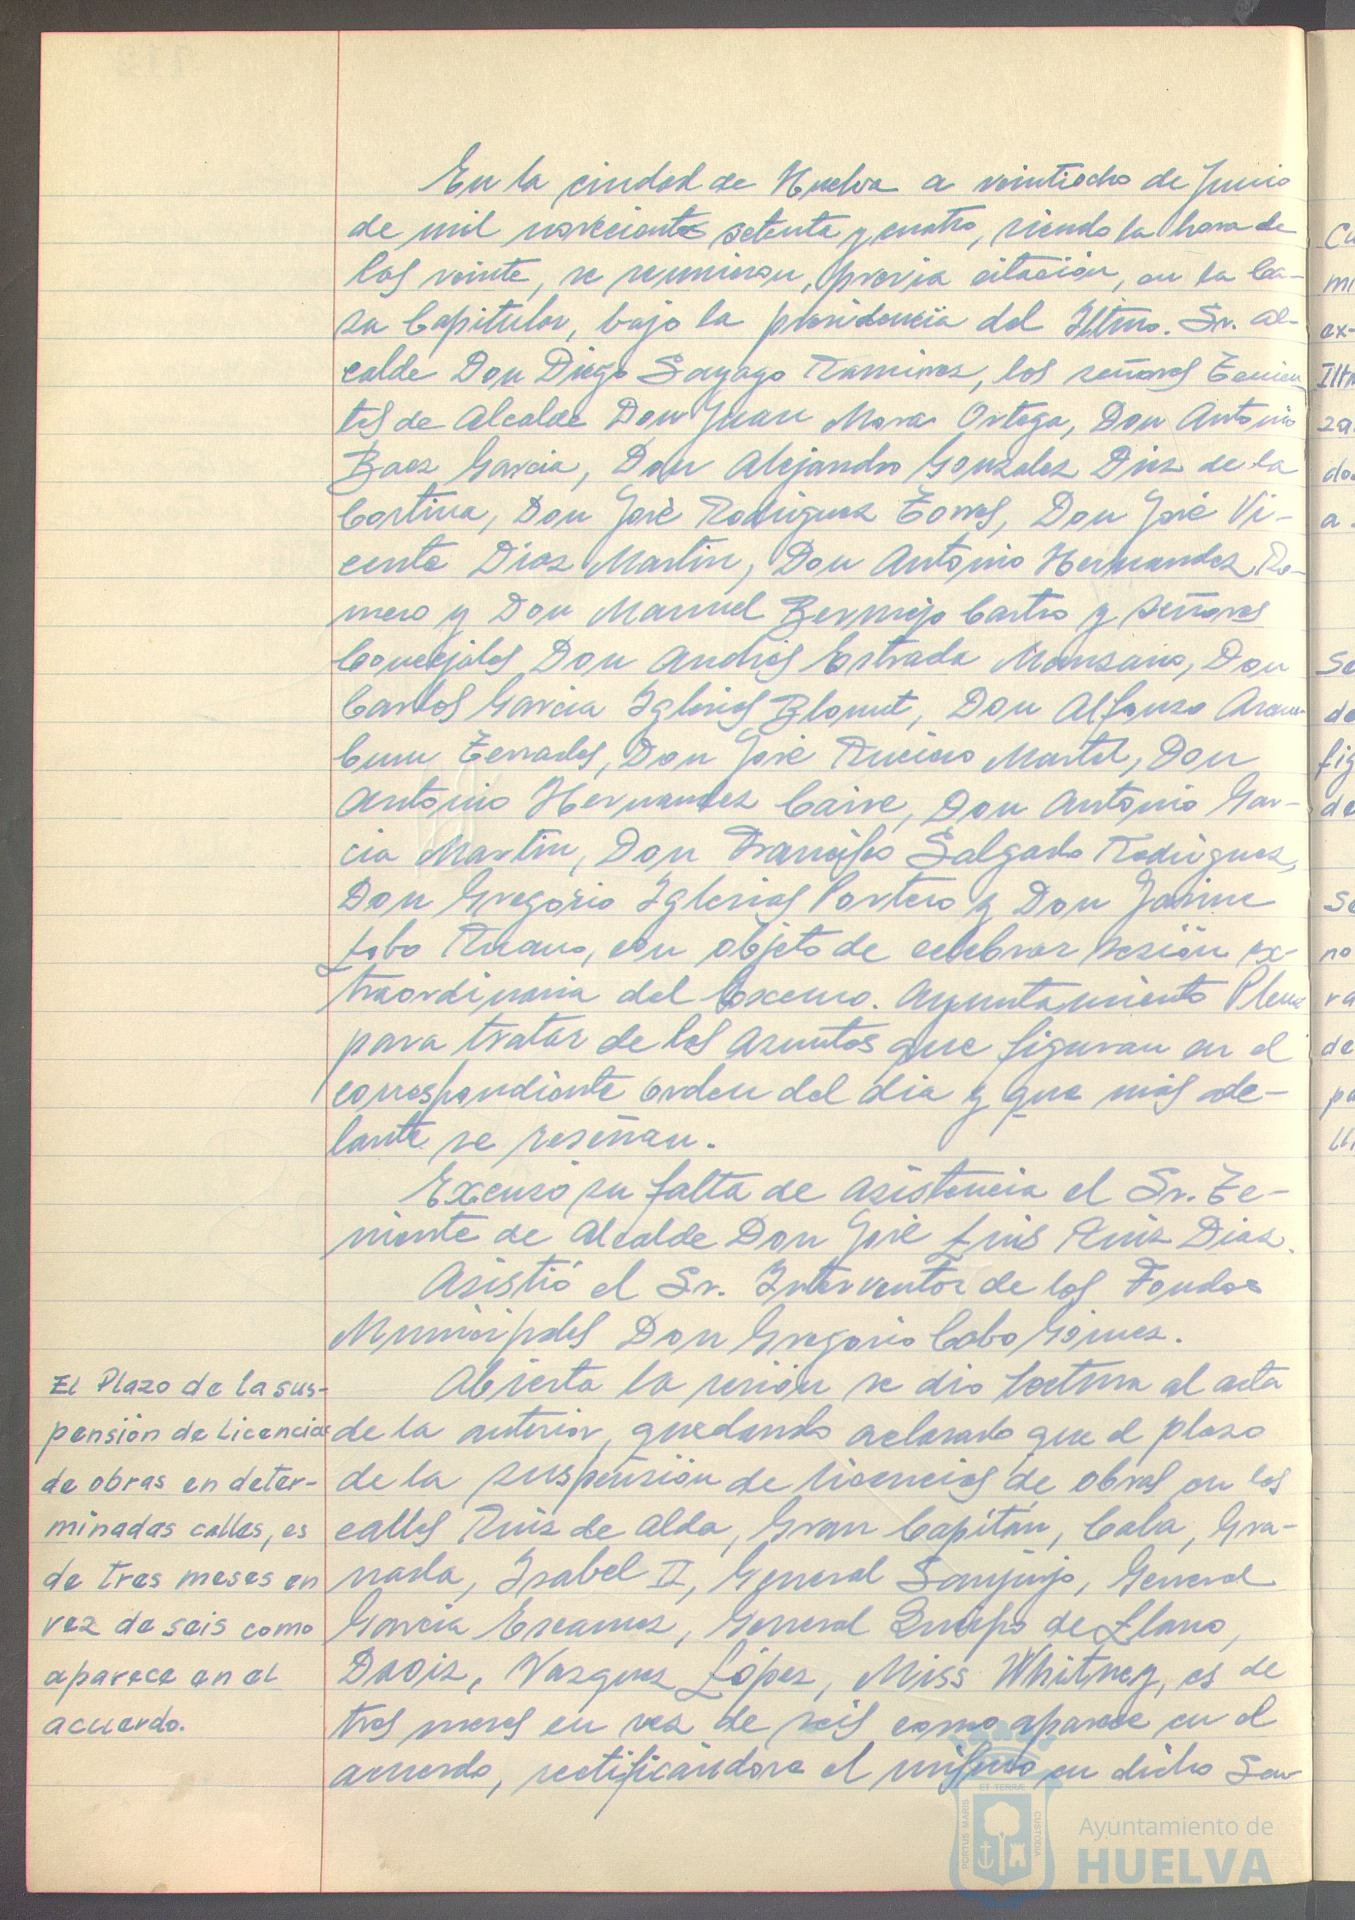 En la ciudad de Huelva a veintiocho de Junio
de mil novecientos setenta y cuatro, siendo la hora de
las veinte, se reunieron, previa citación, en la Ca-
sa Capitular, bajo la presidencia del Iltmo. Sr. Al-
calde Don Diego Sayago Ramirez, los señores Tenien
tes de Alcalde Don Juan Mora Ortega, Don Antonio
Baez Garcia, Don Alejandro Gonzalez Diez de la
Cortina, Don José Rodriguez Torres, Don José Vi-
cente Diaz Martin, Don Antonio Hernandez Ro-
mero y Don Manuel Bermejo Castro y señores
Concejales Don Andrés Estrada Manzano, Don
Carlos Garcia Iglesias Blomut, Don Alfonso Aram-
buru Terrades, Don José Martel, Don
Antonio Hernandez Caire, Don Antonio Gar-
cia Martin, Don Francisco Salgado Rodriguez,
Don Gregorio Iglesias Portero y Don Jaime
Lobo Ruano, con objeto de celebrar sesión ex-
traordinaria del Excemo. Ayuntamiento Pleno
para tratar de los asuntos que figuran en el
correspondiente orden del día y que más ade-
lante se reseñan.
Excusó su falta de asistencia el Sr. Te-
niente de Alcalde Don José Luis Ruiz Diaz.
Asistió el Sr. Interventor de los Fondos
Municipales Don Gregorio Cabo Gómez.
Abierta la sesión se dio lectura al acta
de la anterior, quedando aclarado que el plazo
de la suspensión de licencias de obras en las
calles Ruiz de Alda, Gran Capitán, Cala, Gra-
nada, Isabel II, General Sanjurjo, General
Garcia Escamez, General Queipo de Llano,
Daoiz, Vazquez López, Miss Whitney, es de
tres meses en vez de seis como aparece en el
acuerdo, rectificándose el mismo en dicho Sen
El Plazo de la sus-
pensión de Licencias
de obras en deter-
minadas calles, es
de tres meses en
vez de seis como
aparece en el
acuerdo.
Cu
mi
ex-
Iltm
za.
do
a.
Se
de
fig
de
Se
no
ra
de
pa
PORTUS MARIS
ET TERRAE
CUSTODIA
Ayuntamiento de
HUELVA